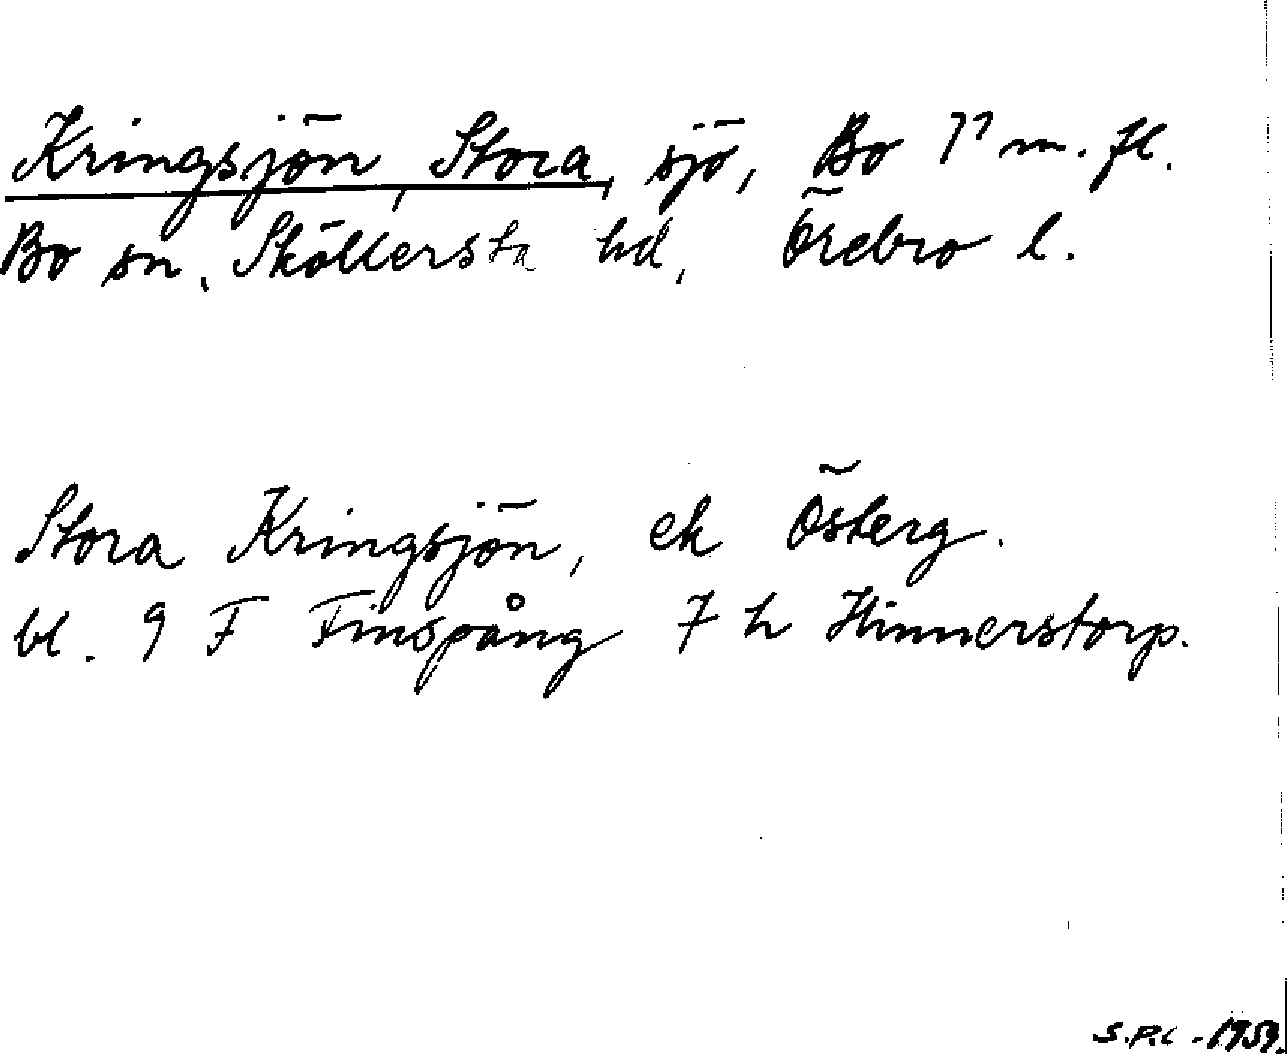 Kringsjön, Stora, sjö, Bo 1⁹ m. fl.
Bo sn, Sköllersta hd, Örebro l.
Stora Kringsjön, ek Österg.
bl. 9 F Finspång 7 h Hinnerstorp.
S.P.C - 1959.